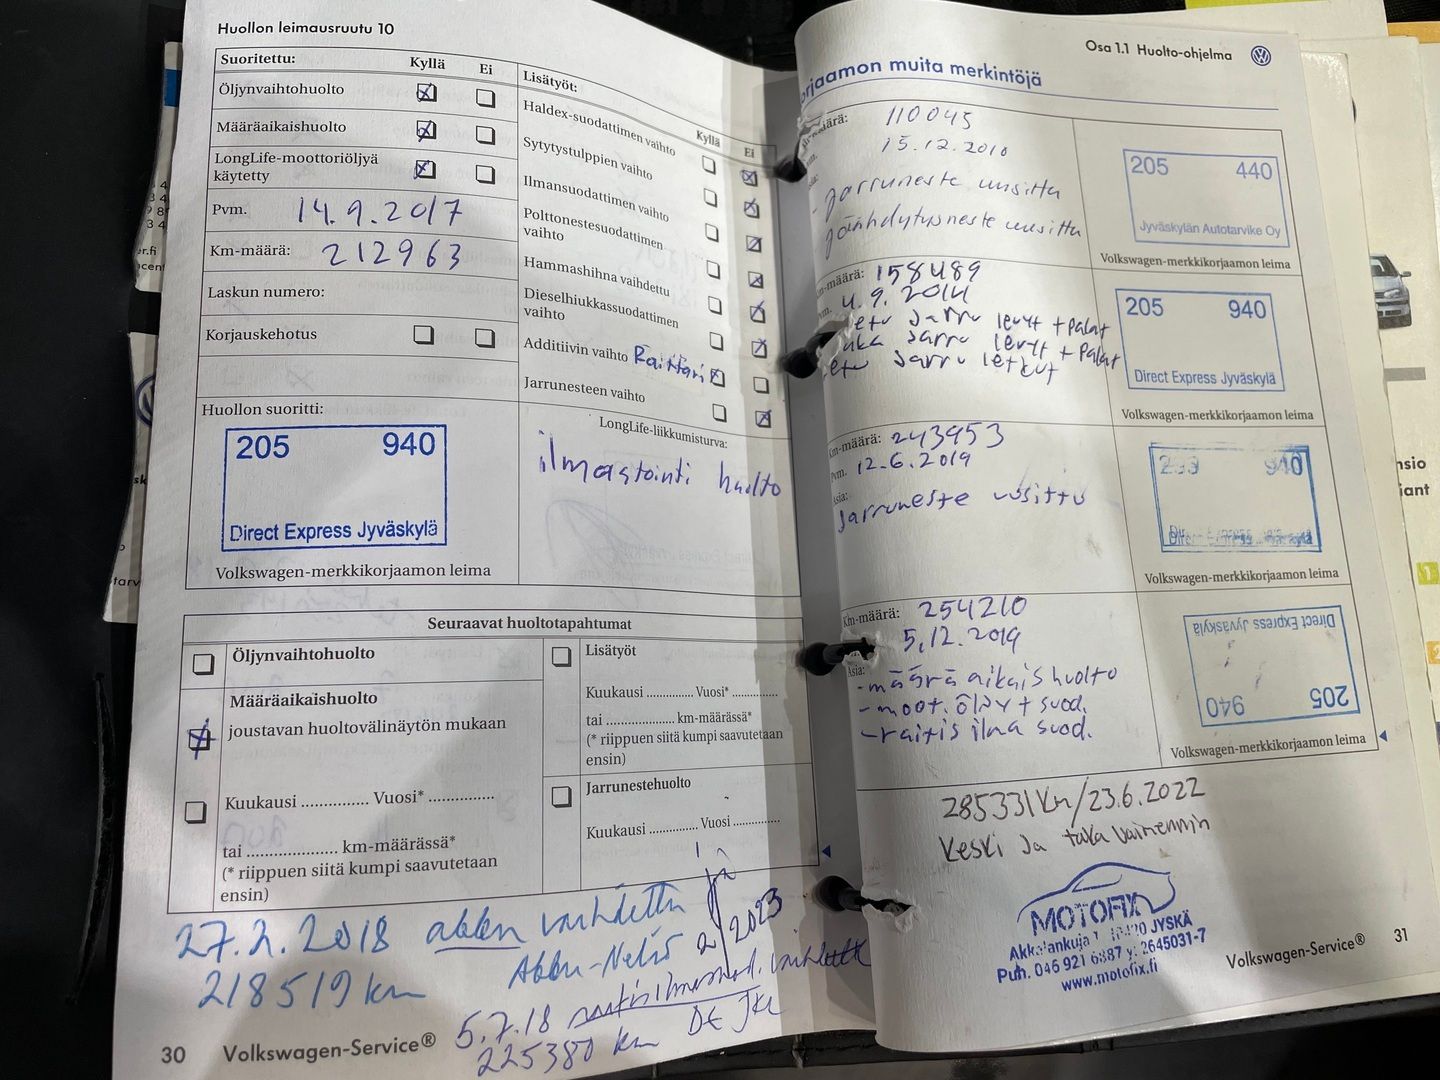 Huollon leimausruutu 10
Suoritettu: Kyllä Ei
Öljynvaihtohuolto
Määräaikaishuolto
LongLife-moottoriöljyä
käytetty
Pvm. 14.9.2017
Km-määrä: 212963
Laskun numero:
Korjauskehotus
Huollon suoritti:
205 940
Direct Express Jyväskylä
Volkswagen-merkkikorjaamon leima
Lisätyöt:
Kyllä Ei
Haldex-suodattimen vaihto
Sytytystulppien vaihto
Ilmansuodattimen vaihto
Polttonestesuodattimen
vaihto
Hammashihna vaihdettu
Dieselhiukkassuodattimen
vaihto
Additiivin vaihto Raittari
Jarrunesteen vaihto
LongLife-liikkumisturva:
ilmastointi huolto
Seuraavat huoltotapahtumat
Öljynvaihtohuolto
Määräaikaishuolto
joustavan huoltovälinäytön mukaan
Kuukausi .............. Vuosi* ..............
tai ................... km-määrässä*
(* riippuen siitä kumpi saavutetaan
ensin)
Lisätyöt
Kuukausi .............. Vuosi* ..............
tai ..................... km-määrässä*
(* riippuen siitä kumpi saavutetaan
ensin)
Jarrunestehuolto
Kuukausi .............. Vuosi ..............
27.2.2018 akku vaihdettu
218519 km Akku-Netis 2/2023
5.7.18
225380 km DE JKL
30 Volkswagen-Service®
Osa 1.1 Huolto-ohjelma
orjaamon muita merkintöjä
110045
15.12.2010
- Jarruneste uusittu
Jäähdytysneste uusittu
205 440
Jyväskylän Autotarvike Oy
Volkswagen-merkkikorjaamon leima
Km-määrä: 158489
4.9.2014
etu Jarru levyt + Palat
taka Jarru levyt + Palat
etu Jarru letkut
205 940
Direct Express Jyväskylä
Volkswagen-merkkikorjaamon leima
Km-määrä: 243953
Pvm. 12.6.2019
Asia:
Jarruneste uusittu
940
Volkswagen-merkkikorjaamon leima
Km-määrä: 254210
5.12.2019
Asia:
-määrä aikaishuolto
-moot. öljy + suod.
-raitis ilma suod.
205 940
Direct Express Jyväskylä
Volkswagen-merkkikorjaamon leima
285331 Km/23.6.2022
Keski ja taka vaimennin
MOTOFIX
JYSKÄ
Puh. 046 921 6887 y: 2645031-7
www.motofix.fi
Volkswagen-Service® 31